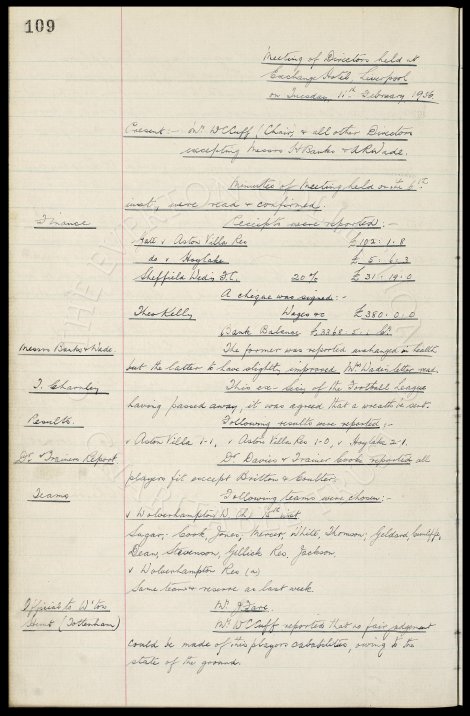 109
Meeting of Directors held at
Exchange Hotel, Liverpool
on Tuesday, 11th February 1936.
Present:- Mr WCCuff (Chair) & all other Directors
excepting Messrs Banks & ARWade.
Minutes of Meeting held on the 6th
inst, were read & confirmed.
Finance Receipts were reported:-
Gate v Aston Villa Res £102. 1. 8
do v Hoylake £5. 6. 3
Sheffield Weds F.C. 20% £31. 19. 0
A cheque was signed:-
Theo Kelly Wages &c £380. 0. 0
Bank Balance £3368. 5.
Messrs Banks & Wade. The former was reported unchanged in health
but the latter to have slightly improved. Mr Wade's letter read.
T. Charnley This ex-Sec of the Football League
having passed away, it was agreed that a wreath be sent.
Results. Following results were reported:-
v Aston Villa 1-1, v Aston Villa Res 1-0, v Hoylake 2-1.
Dr & Trainers Report Dr Davies & Trainer Cooke reported all
players fit except Britton & Coulter.
Teams Following teams were chosen:-
v Wolverhampton W 15th inst
Sagar; Cook, Jones; Mercer, White, Thomson; Geldard, Cunliffe,
Dean, Stevenson, Gillick Res. Jackson
v Wolverhampton Res (a)
Same team & reserve as last week.
Official to W'ton
(Tottenham) Mr
Mr WCCuff reported that no fair judgement
could be made of this players capabilities, owing to the
state of the ground.